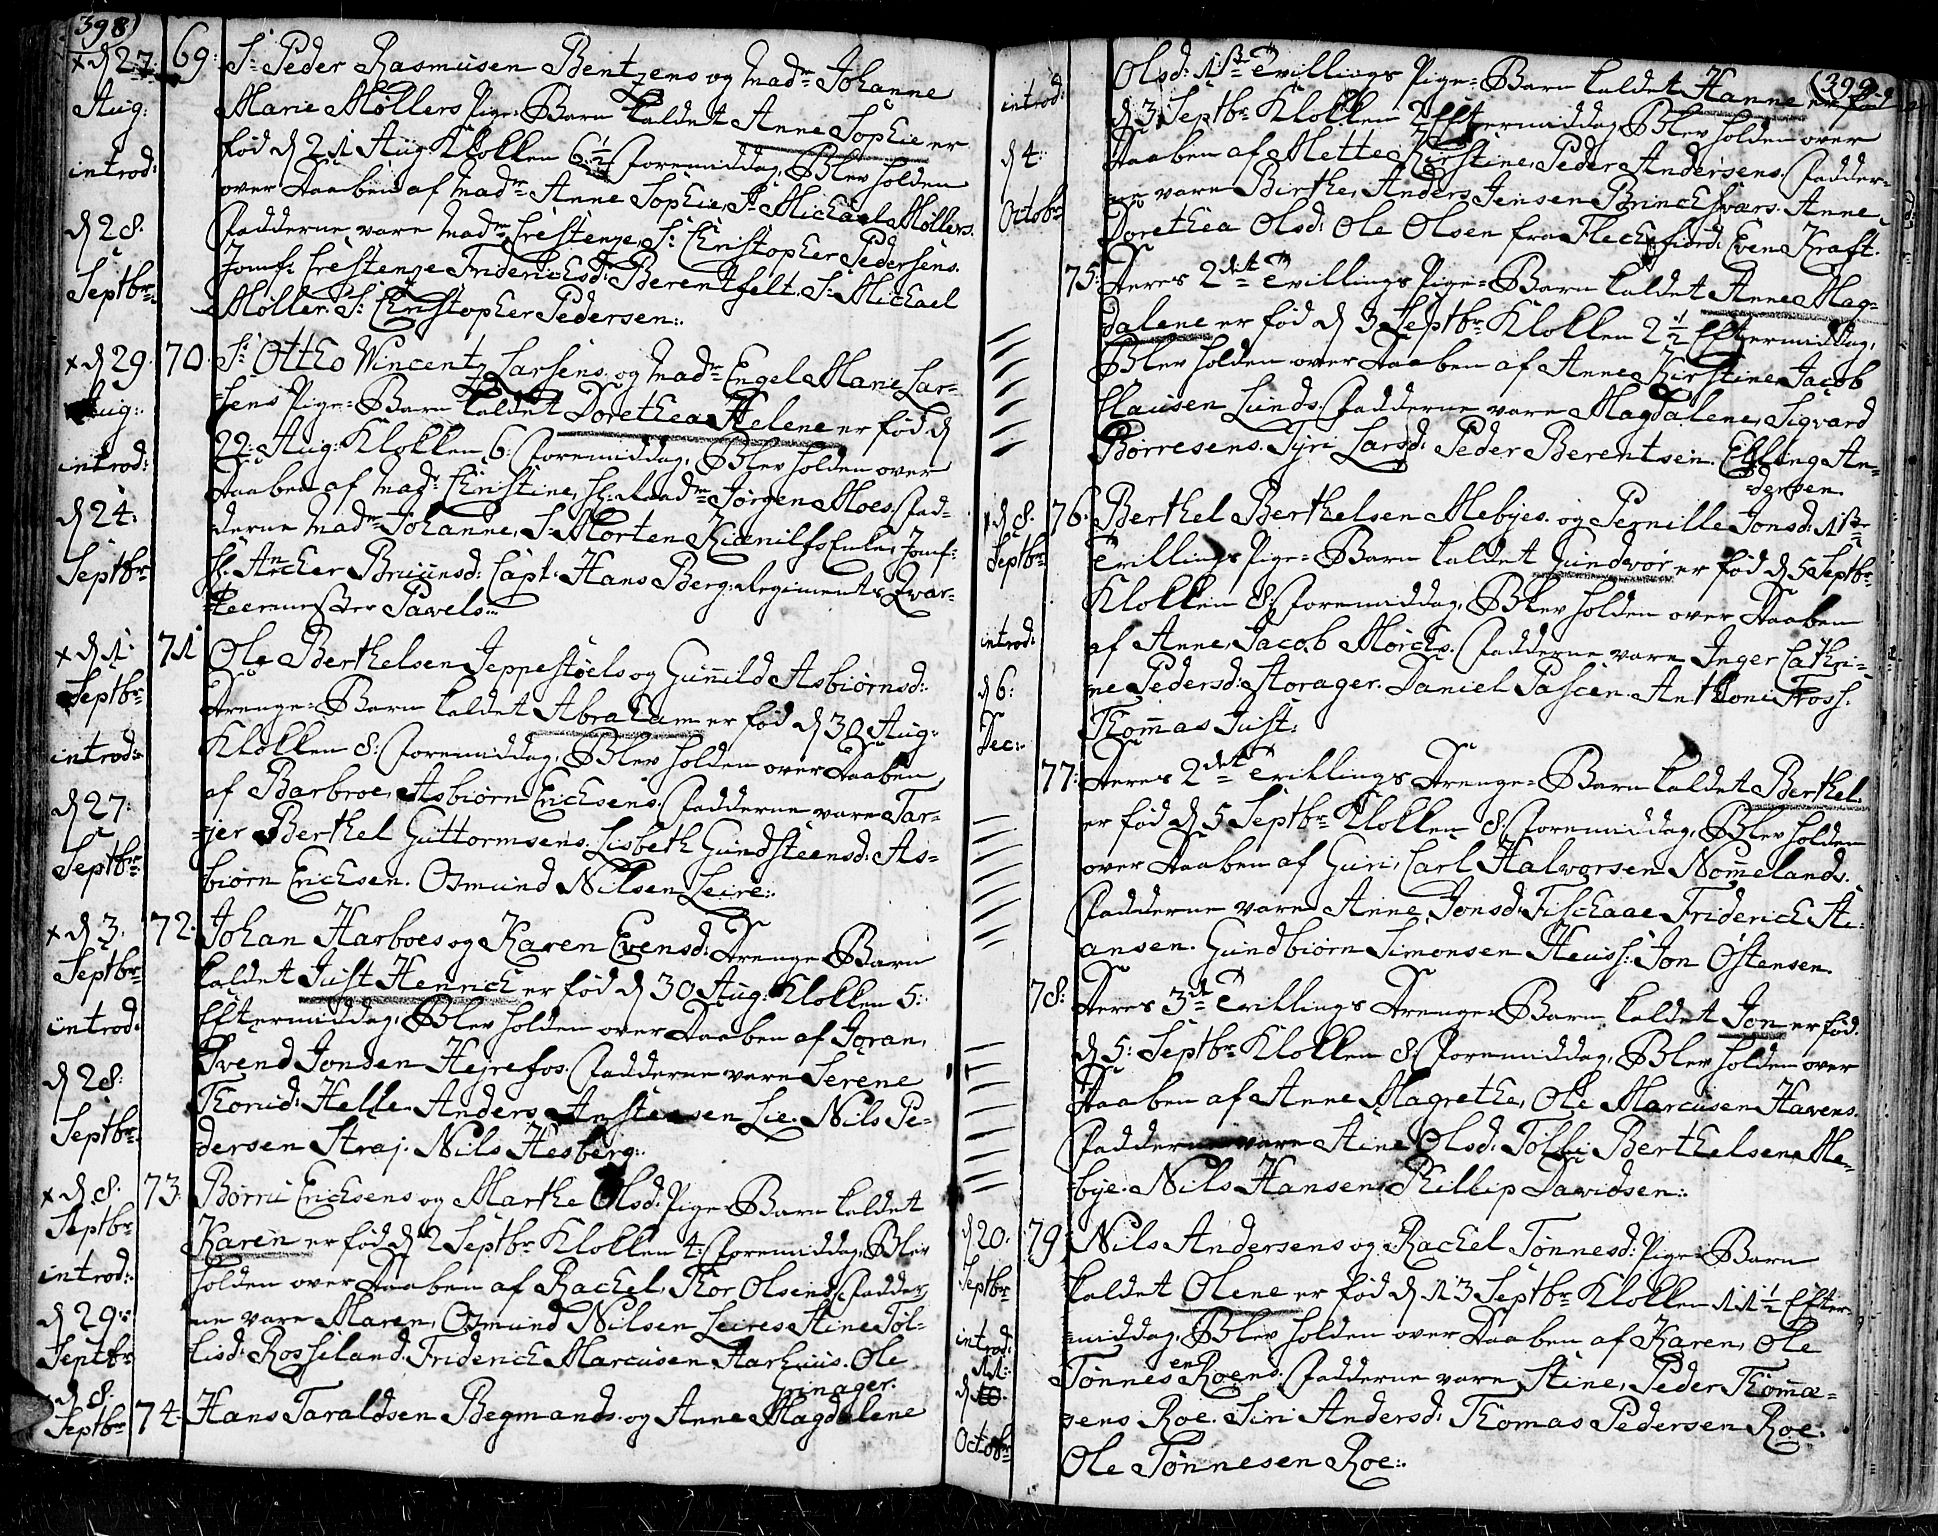 398)
x d 27 69: Sr Peder Rasmusen Bentzens og Madme Johanne
Aug: Marie Møllers Pige-Barn kaldet Anne Sophie er
fød d 21 Aug: Klokken 6 1/2 Formiddag, Blev holden
introd: over Daaben af Madme Anne Sophie, Sr Michael Møllers.
d 28. Fadderne vare Madme Crestenze, Sr Christopher Pedersens.
Septbr Jomf: Crestenze Friderichsd: Berentfelt. Sr Michael
Møller. Sr Christopher Pedersen:.
x d 29. 70. Sr Ottho Wincentz Larsens og Madme Engel Marie Lar-
Aug: sens Pige-Barn kaldet Dorethea Helene er fød d
introd: 22: Aug: Klokken 6: Formiddag, Blev holden over
Daaben af Mad: Christine, Jørgen Moes. Fad-
d 24: derne Madme Johanne, Sr Morten Enke, Jomf:
Septbr Ancher Bruunsd: Capt: Hans Berg. Regiments Qvar-
teermester Pavels:.
x d 1: 71 Ole Berthelsen Jeppestøels og Gunild Asbiørnsd:
Septbr Drenge-Barn kaldet Abraham er fød d 30 Aug:
introd: Klokken 8: Formiddag, Blev holden over Daaben
af Barbroe, Asbiørn Erichsens. Fadderne vare Tar-
d 27: jer Berthel Guttormsens. Lisbeth Gundsteensd: As-
Septbr biørn Erichsen. Osmund Nilsen Leire:.
x d 3. 72. Johan Harboes og Karen Evensd: Drenge-Barn
Septbr kaldet Just Henrich er fød d 30 Aug: Klokken 5:
introd. Eftermiddag, Blev holden over Daaben af Joran,
Svend Jonsen Hejrefos. Fadderne vare Serene
d 28: Thorud: Helle. Anders Anstensen Lie. Nils Pe-
Septbr dersen Straj. Nils Hesberg:.
x d 8. 73. Børru Erichsens og Marthe Olsd: Pige-Barn kaldet
Septbr Karen er fød d 2 Septbr Klokken 4: Formiddag, Blev
introd: holden over Daaben af Rachel, Thor Olsens. Fadder-
d 29: ne vare Maren, Osmund Nilsen Leires. Stine Tol-
Septbr lisd: Rosseland. Friderich Marcusen Aarhuus. Ole
Grinager.
d 8. Septbr 74. Hans Taraldsen Begmands og Anne Magdalene
(399
introd: Olsd: 1ste Tvillings Pige-Barn kaldet Hanne er fød
d 3 Septbr Klokken 2 Eftermiddag Blev holden over
d 4: Daaben af Mette Kirstine, Peder Andersens. Fadder-
Octobr ne vare Birthe, Anders Jensen Brinchsværs. Anne
Dorethea Olsd: Ole Olsen fra Flechefiord. Even Kraft.
75: Deres 2det Tvillings Pige-Barn kaldet Anne Mag-
dalene er fød d 3 Septbr Klokken 2 1/2 Eftermiddag,
Blev holden over Daaben af Anne Kirstine, Jacob
Clausen Lunds. Fadderne vare Magdalene, Sigvard
Børresens. Tyri Larsd: Peder Berentsen. Elling An-
dersen.
d 8. 76. Berthel Berthelsen Mebyes og Pernille Jonsd: 1ste
Septbr Trillings Pige-Barn kaldet Gundvor er fød d 5 Septbr
Klokken 8: Formiddag, Blev holden over Daaben
introd: af Anne, Jacob Mørchs. Fadderne vare Inger Cathri-
d 6: ne Pedersd: Storager. Daniel Paschen. Anthoni Fross.
Dec: Thommas Just:
77: Deres 2det Trillings Drenge-Barn kaldet Berthel
er fød d 5 Septbr Klokken 8: Formiddag, Blev holden
over Daaben af Guri, Carl Halvorsen Nommelands.
Fadderne vare Anne Jonsd: Tischaae Friderich Sti-
ansen. Gundbiørn Simonsen Heuss: Jon Østensen.
78: Deres 3de Trillings Drenge-Barn kaldet Jon er fød
d 5: Septbr Klokken 8: Formiddag, Blev holden over
Daaben af Anne Magrethe, Ole Marcusen Havens.
Fadderne vare Aine Olsd: Tolli Berthelsen Me-
bye. Nils Hansen. Phillip Davidsen:.
d 20. 79: Nils Andersens og Rachel Tønnesd: Pige-Barn
Septbr kaldet Olene er fød d 13 Septbr Klokken 11 1/2 Efter-
introd: middag, Blev holden over Daaben af Karen, Ole
d 11: Tønnesen Roens. Fadderne vare Stine, Peder Thomæ-
Octobr sens Roe. Siri Andersd: Thomas Pedersen Roe.
Ole Tønnesen Roe:.